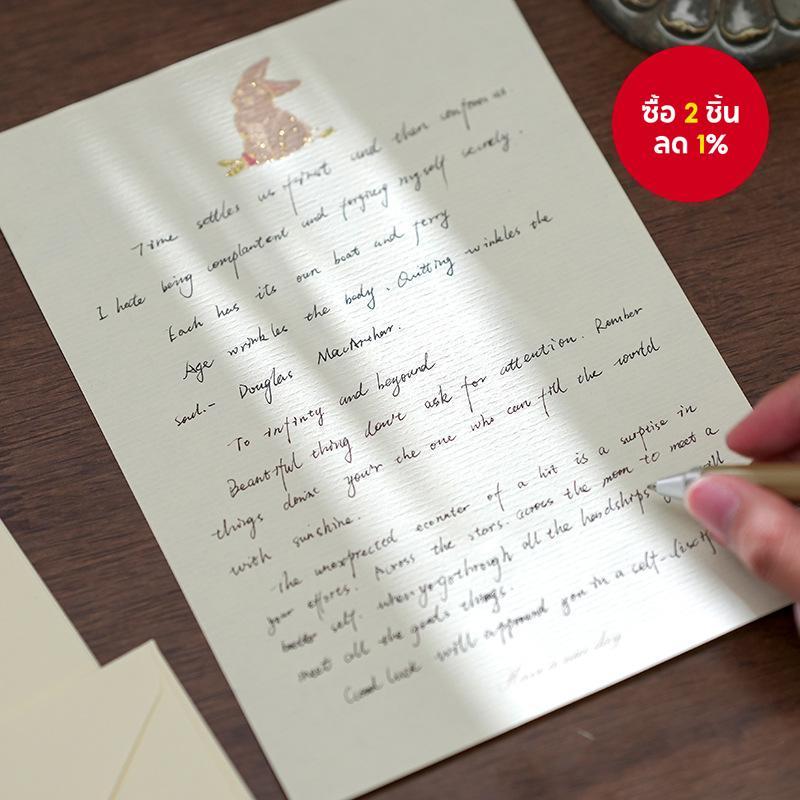 ซื้อ 2 ชิ้น
ลด 1%
Time settles us first and then confuses us.
I hate being complantent and forgiving myself secrely.
Each has its own boat and ferry
Age wrinkles the body. Quitting winkles the
soul.- Douglas MacArthar.
To infinty and beyound
Beautiful thing don't ask for attention. Rember
things donse your the one who can fill the world
with sunshine.
The unexprected econter of a hit is a surprise in
your efforts. Across the stars. across the moon to meet a
better self. when yo go through all the handships
meet all the goods things.
Good luck will appround you in a self-discip
Have a nice day